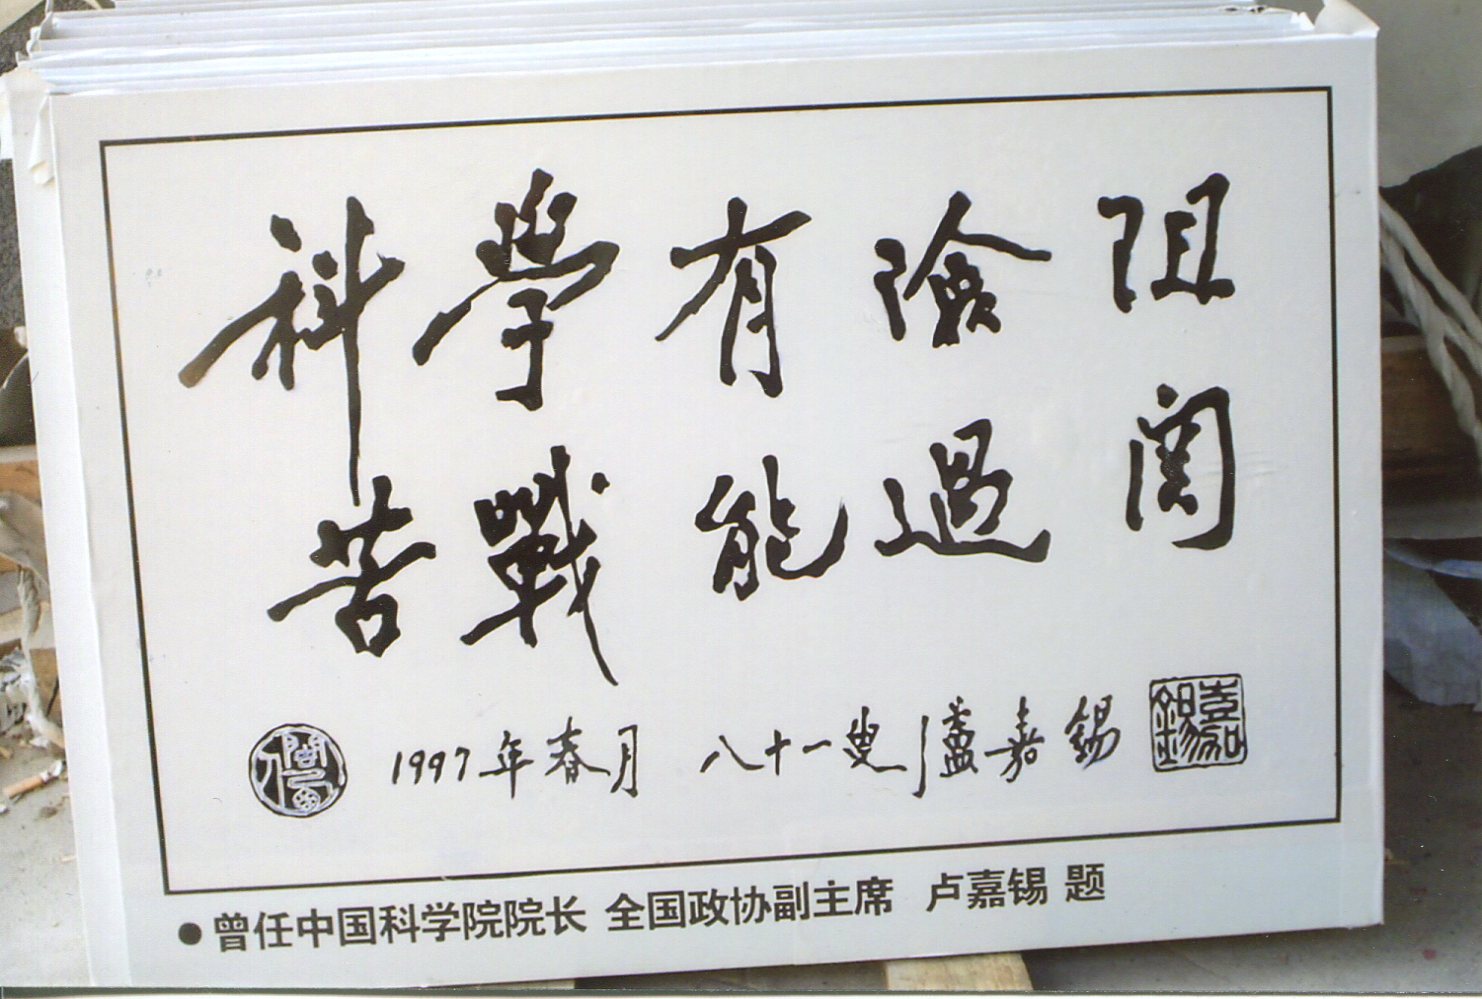 科學有險阻
苦戰能過関
1997年春月 八十一叟 盧嘉錫
嘉錫
●曾任中国科学院院长 全国政协副主席 卢嘉锡 题